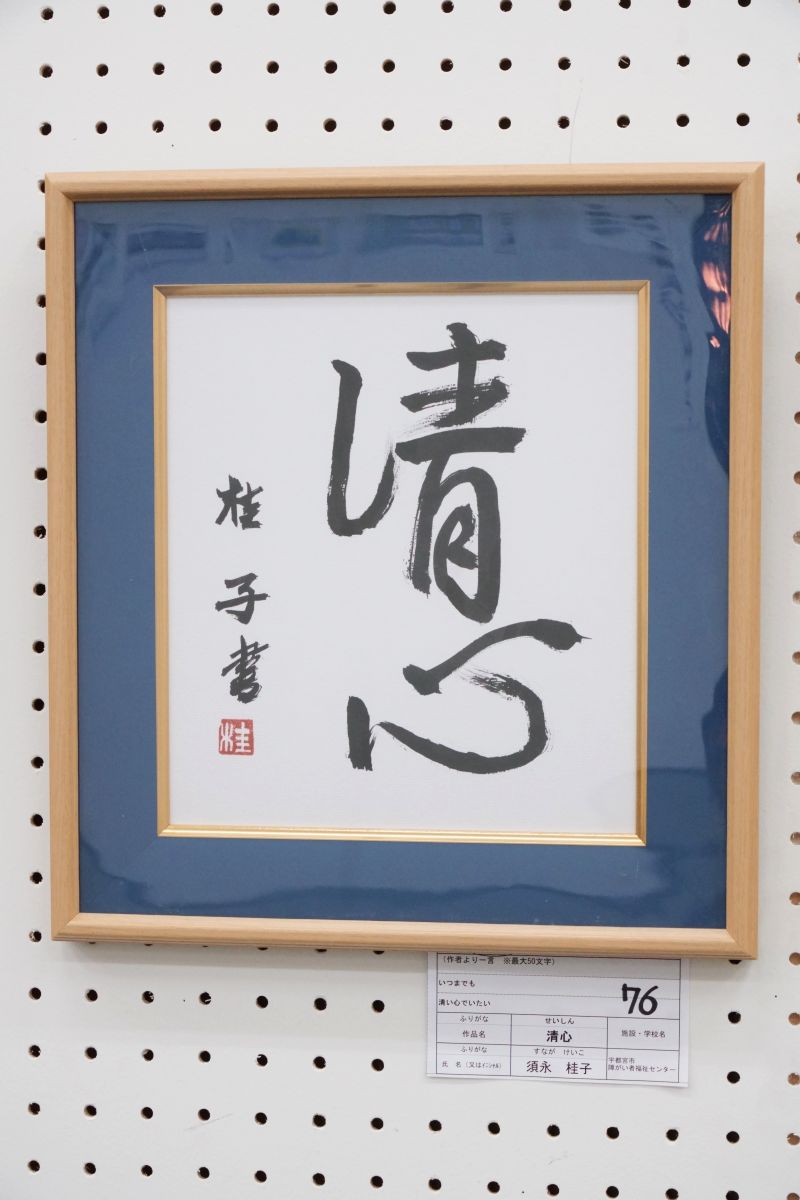 清心
桂子書
桂
(作者より一言　※最大50文字)
いつまでも
清い心でいたい
76
ふりがな　せいしん
作品名　清心　施設・学校名
ふりがな　すなが　けいこ
氏　名（又はｲﾆｼｬﾙ）　須永　桂子　宇都宮市
障がい者福祉センター